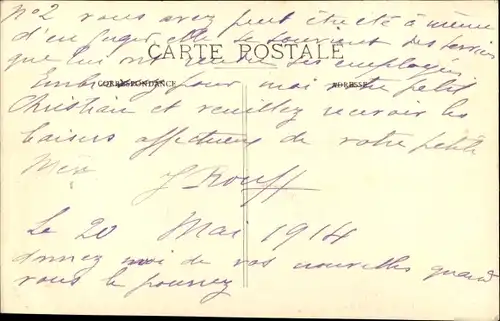 No 2 vous avez peut être été à même
d'en juger, elle se souvient des services
CARTE POSTALE
que lui ont rendu ses employés
CORRESPONDANCE
ADRESSE
Embrassez pour moi votre petit
Christian et veuillez recevoir les
baisers affectueux de votre petite
J Rouff
Le 20 Mai 1914
donnez moi de vos nouvelles quand
vous le pourrez